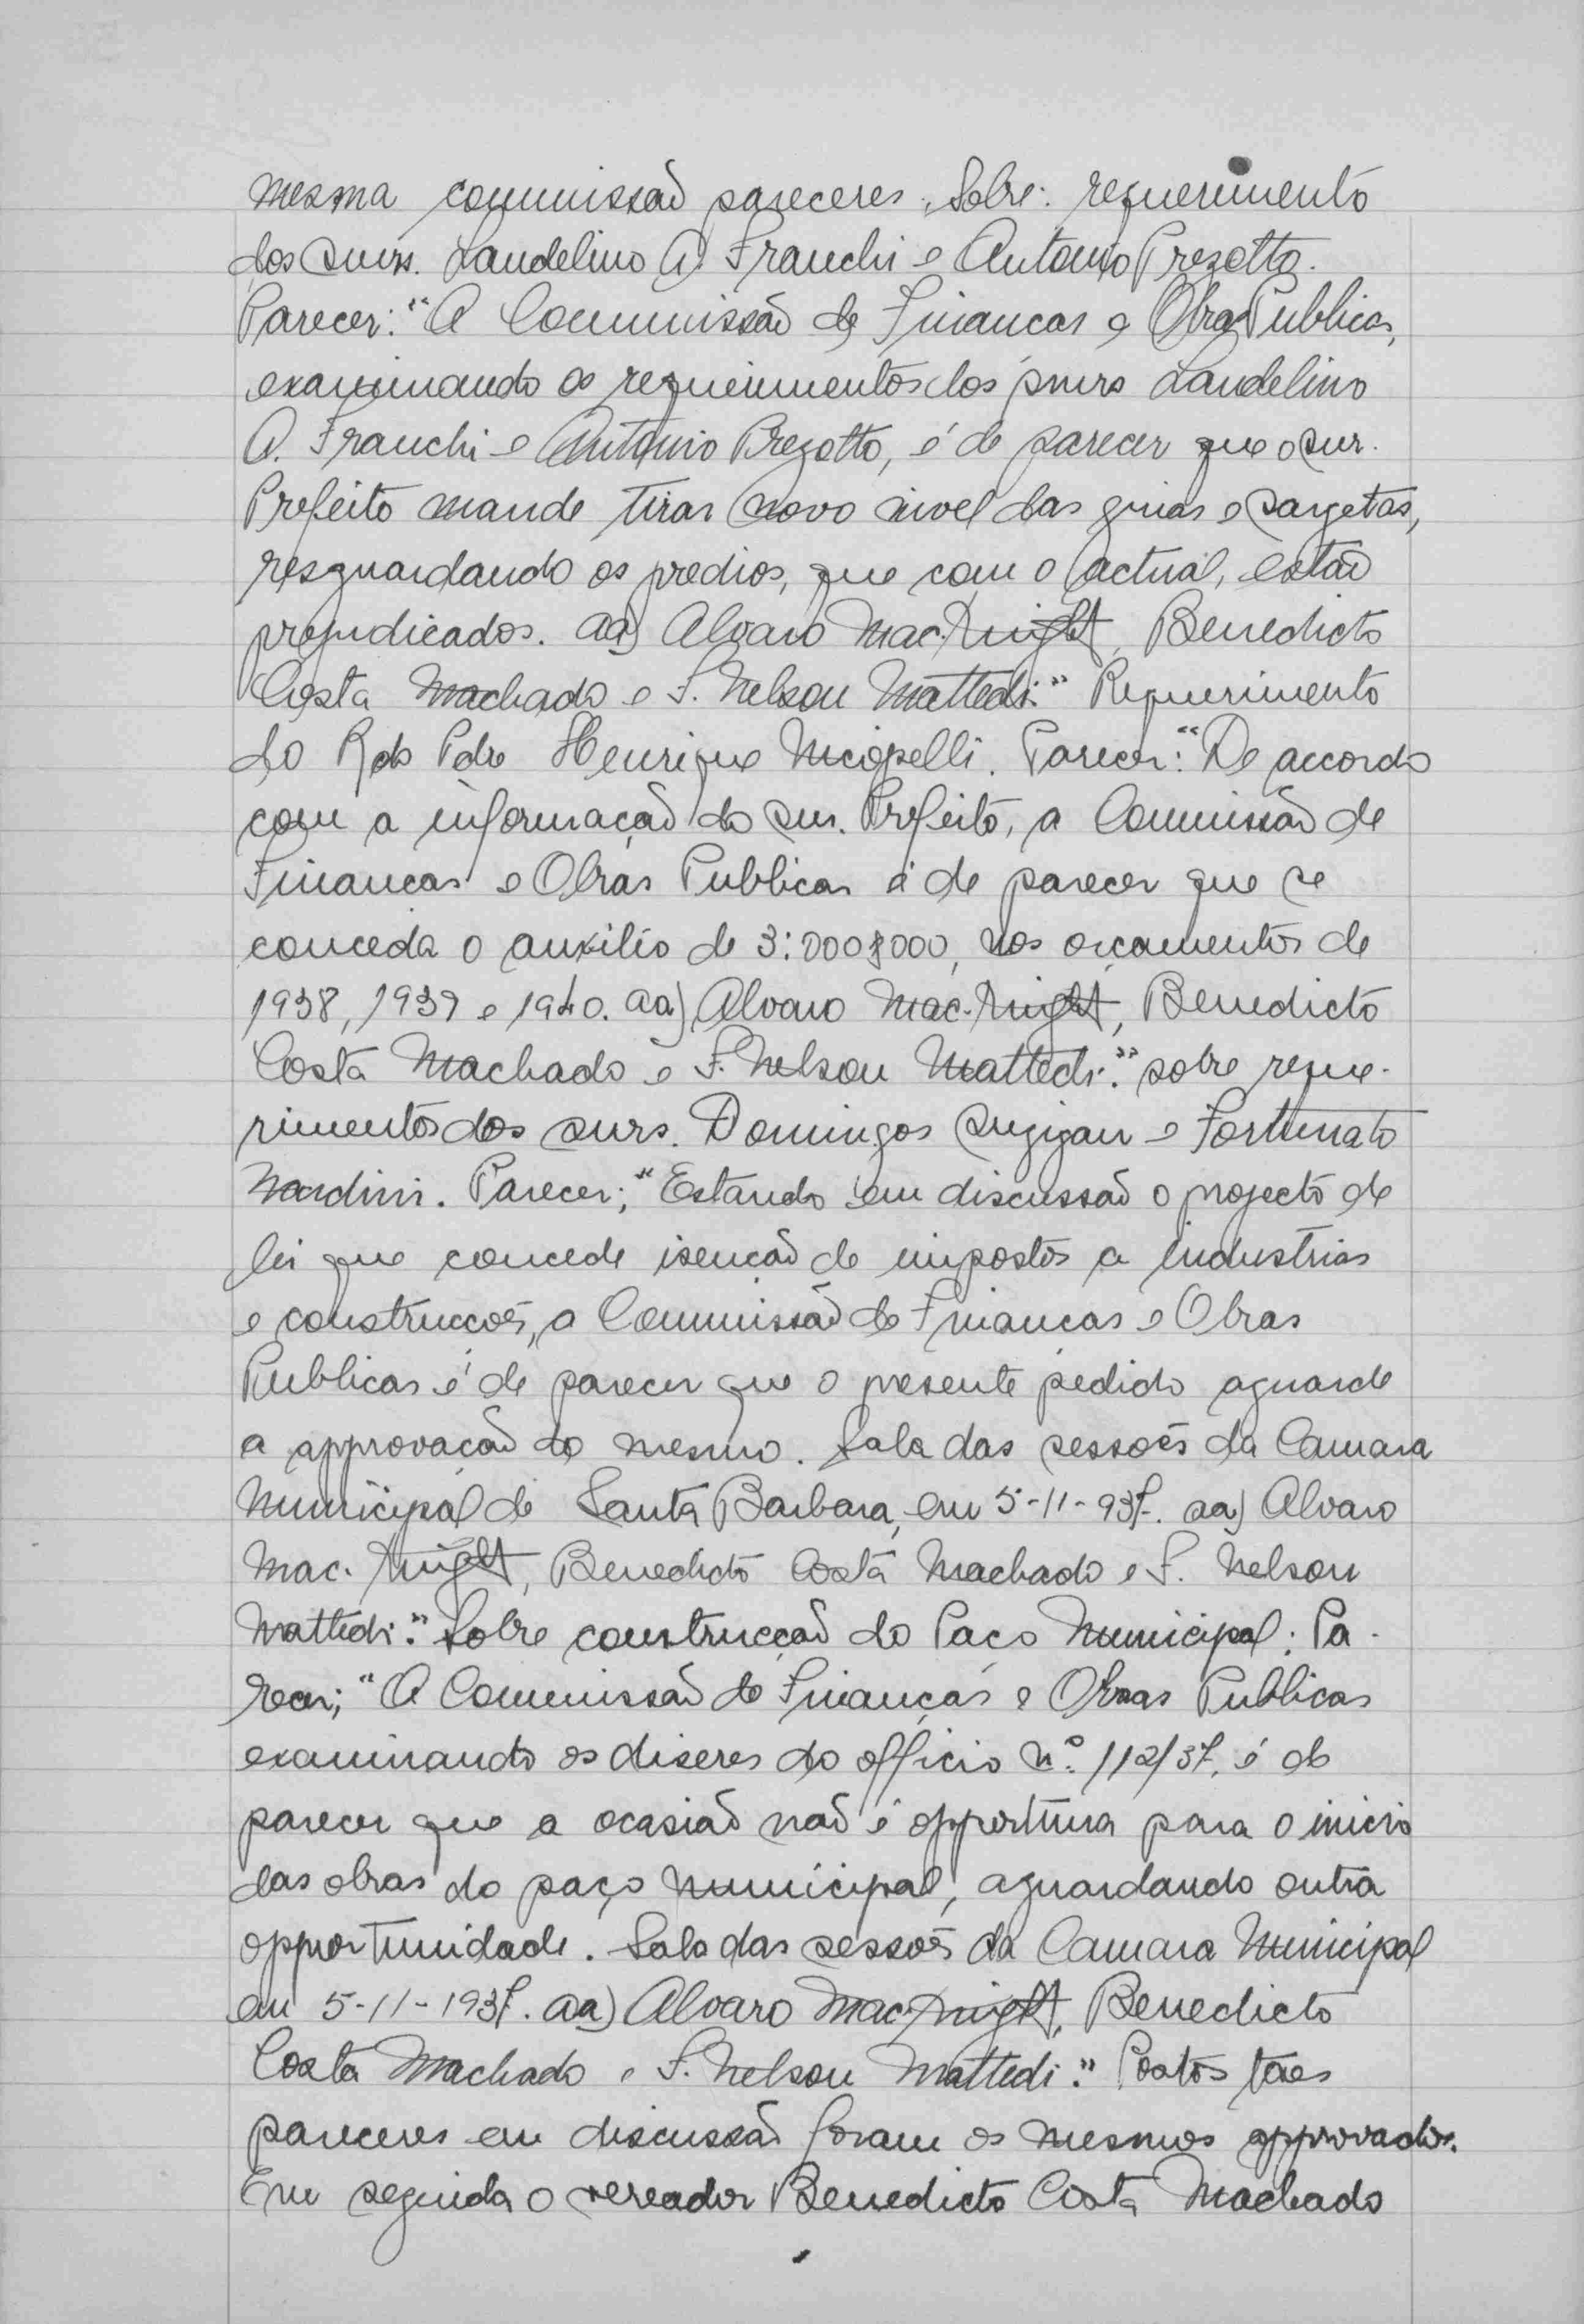 mesma commissão pareceres. Sobre: requerimento
dos snrs. Laudelino A. Franchi e Antonio Prezotto.
Parecer: "A Commissão de Finanças e Obras Publicas,
examinando os requerimentos dos snrs Laudelino
A. Franchi e Antonio Prezotto, é de parecer que o snr.
Prefeito mande tirar novo nivel das guias e sargetas,
resguardando os predios, que com o actual, estão
prejudicados. aa) Alvaro Mac-Knight, Benedicto
Costa Machado e F. Nelson Mattedi." Requerimento
do Rdo Pdre Henrique Nicopelli. Parecer: "De accordo
com a informação do snr. Prefeito, a Commissão de
Finanças e Obras Publicas é de parecer que se
conceda o auxilio de 3:000$000, nos orçamentos de
1938, 1939 e 1940. aa) Alvaro Mac-Knight, Benedicto
Costa Machado e F. Nelson Mattedi." sobre reque-
rimentos dos snrs. Domingos Sugigan e Fortunato
Nardini. Parecer; "Estando em discussão o projecto de
lei que concede isenção de impostos a industrias
e construcções, a Commissão de Finanças e Obras
Publicas é de parecer que o presente pedido aguarde
a approvação do mesmo. Sala das sessões da Camara
Municipal de Santa Barbara, em 5-11-937. aa) Alvaro
Mac-Knight, Benedicto Costa Machado e F. Nelson
Mattedi." Sobre construcção do Paço Municipal: Pa-
recer; "A Commissão de Finanças e Obras Publicas
examinando os dizeres do officio nº 112/37, é de
parecer que a ocasião não é opportuna para o inicio
das obras do paço municipal, aguardando outra
opportunidade. Sala das sessões da Camara Municipal
em 5-11-1937. aa) Alvaro Mac-Knight, Benedicto
Costa Machado e F. Nelson Mattedi." Postos tães
pareceres em discussão foram os mesmos approvados.
Em seguida o vereador Benedicto Costa Machado